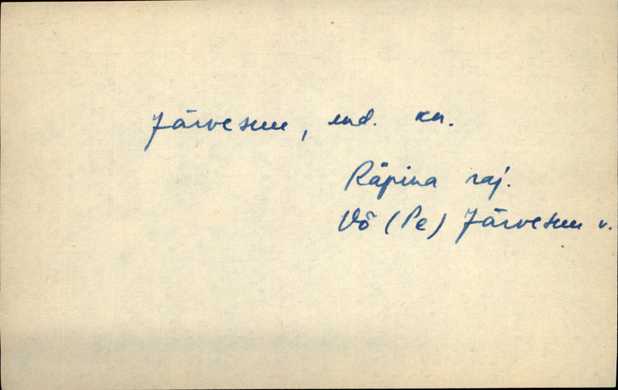 Järvesuu, end. kn.
Räpina raj.
Võ (Pe) Järvesuu v.